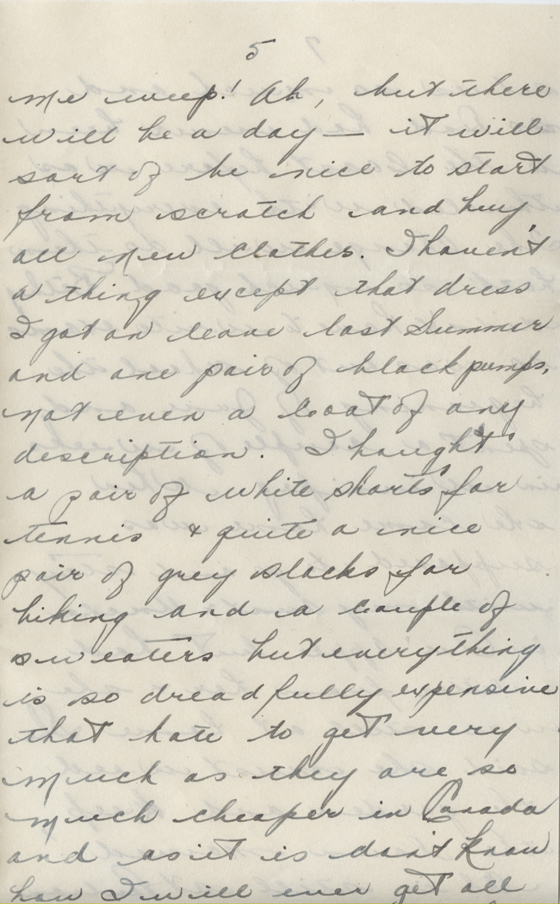 5
me weep! Ah, but there
will be a day — it will
sort of be nice to start
from scratch and buy
all new clothes. I haven't
a thing except that dress
I got on leave last Summer
and one pair of black pumps,
not even a coat of any
description. I bought
a pair of white shorts for
tennis & quite a nice
pair of grey slacks for
hiking and a couple of
sweaters but everything
is so dreadfully expensive
that hate to get very
much as they are so
much cheaper in Canada
and as it is don't know
how I will ever get all